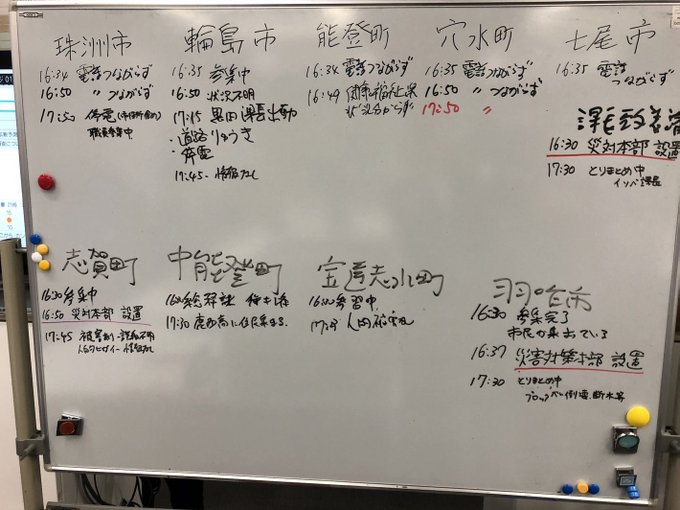 珠洲市
16:34 電話つながらず
16:50 〃 つながらず
17:50 停電(市役所含め)
職員参集中
輪島市
16:35 参集中
16:50 状況不明
17:15 黒田課長出勤
・道路りゅうき
・停電
17:45 情報なし
能登町
16:34 電話つながらず
16:49 健康福祉課
状況分からず
穴水町
16:35 電話つながらず
16:50 〃 つながらず
17:50 〃
七尾市
16:35 電話
つながらず
16:30 災対本部 設置
17:30 とりまとめ中
課長
志賀町
16:30 参集中
16:50 災対本部 設置
17:45 被害あり
中能登町
17:30 鹿西高に住民集まる
宝達志水町
参集中
羽咋市
16:30 参集完了
市民が来出ている
16:37 災害対策本部 設置
17:30 とりまとめ中
ブロックベい倒壊、断水